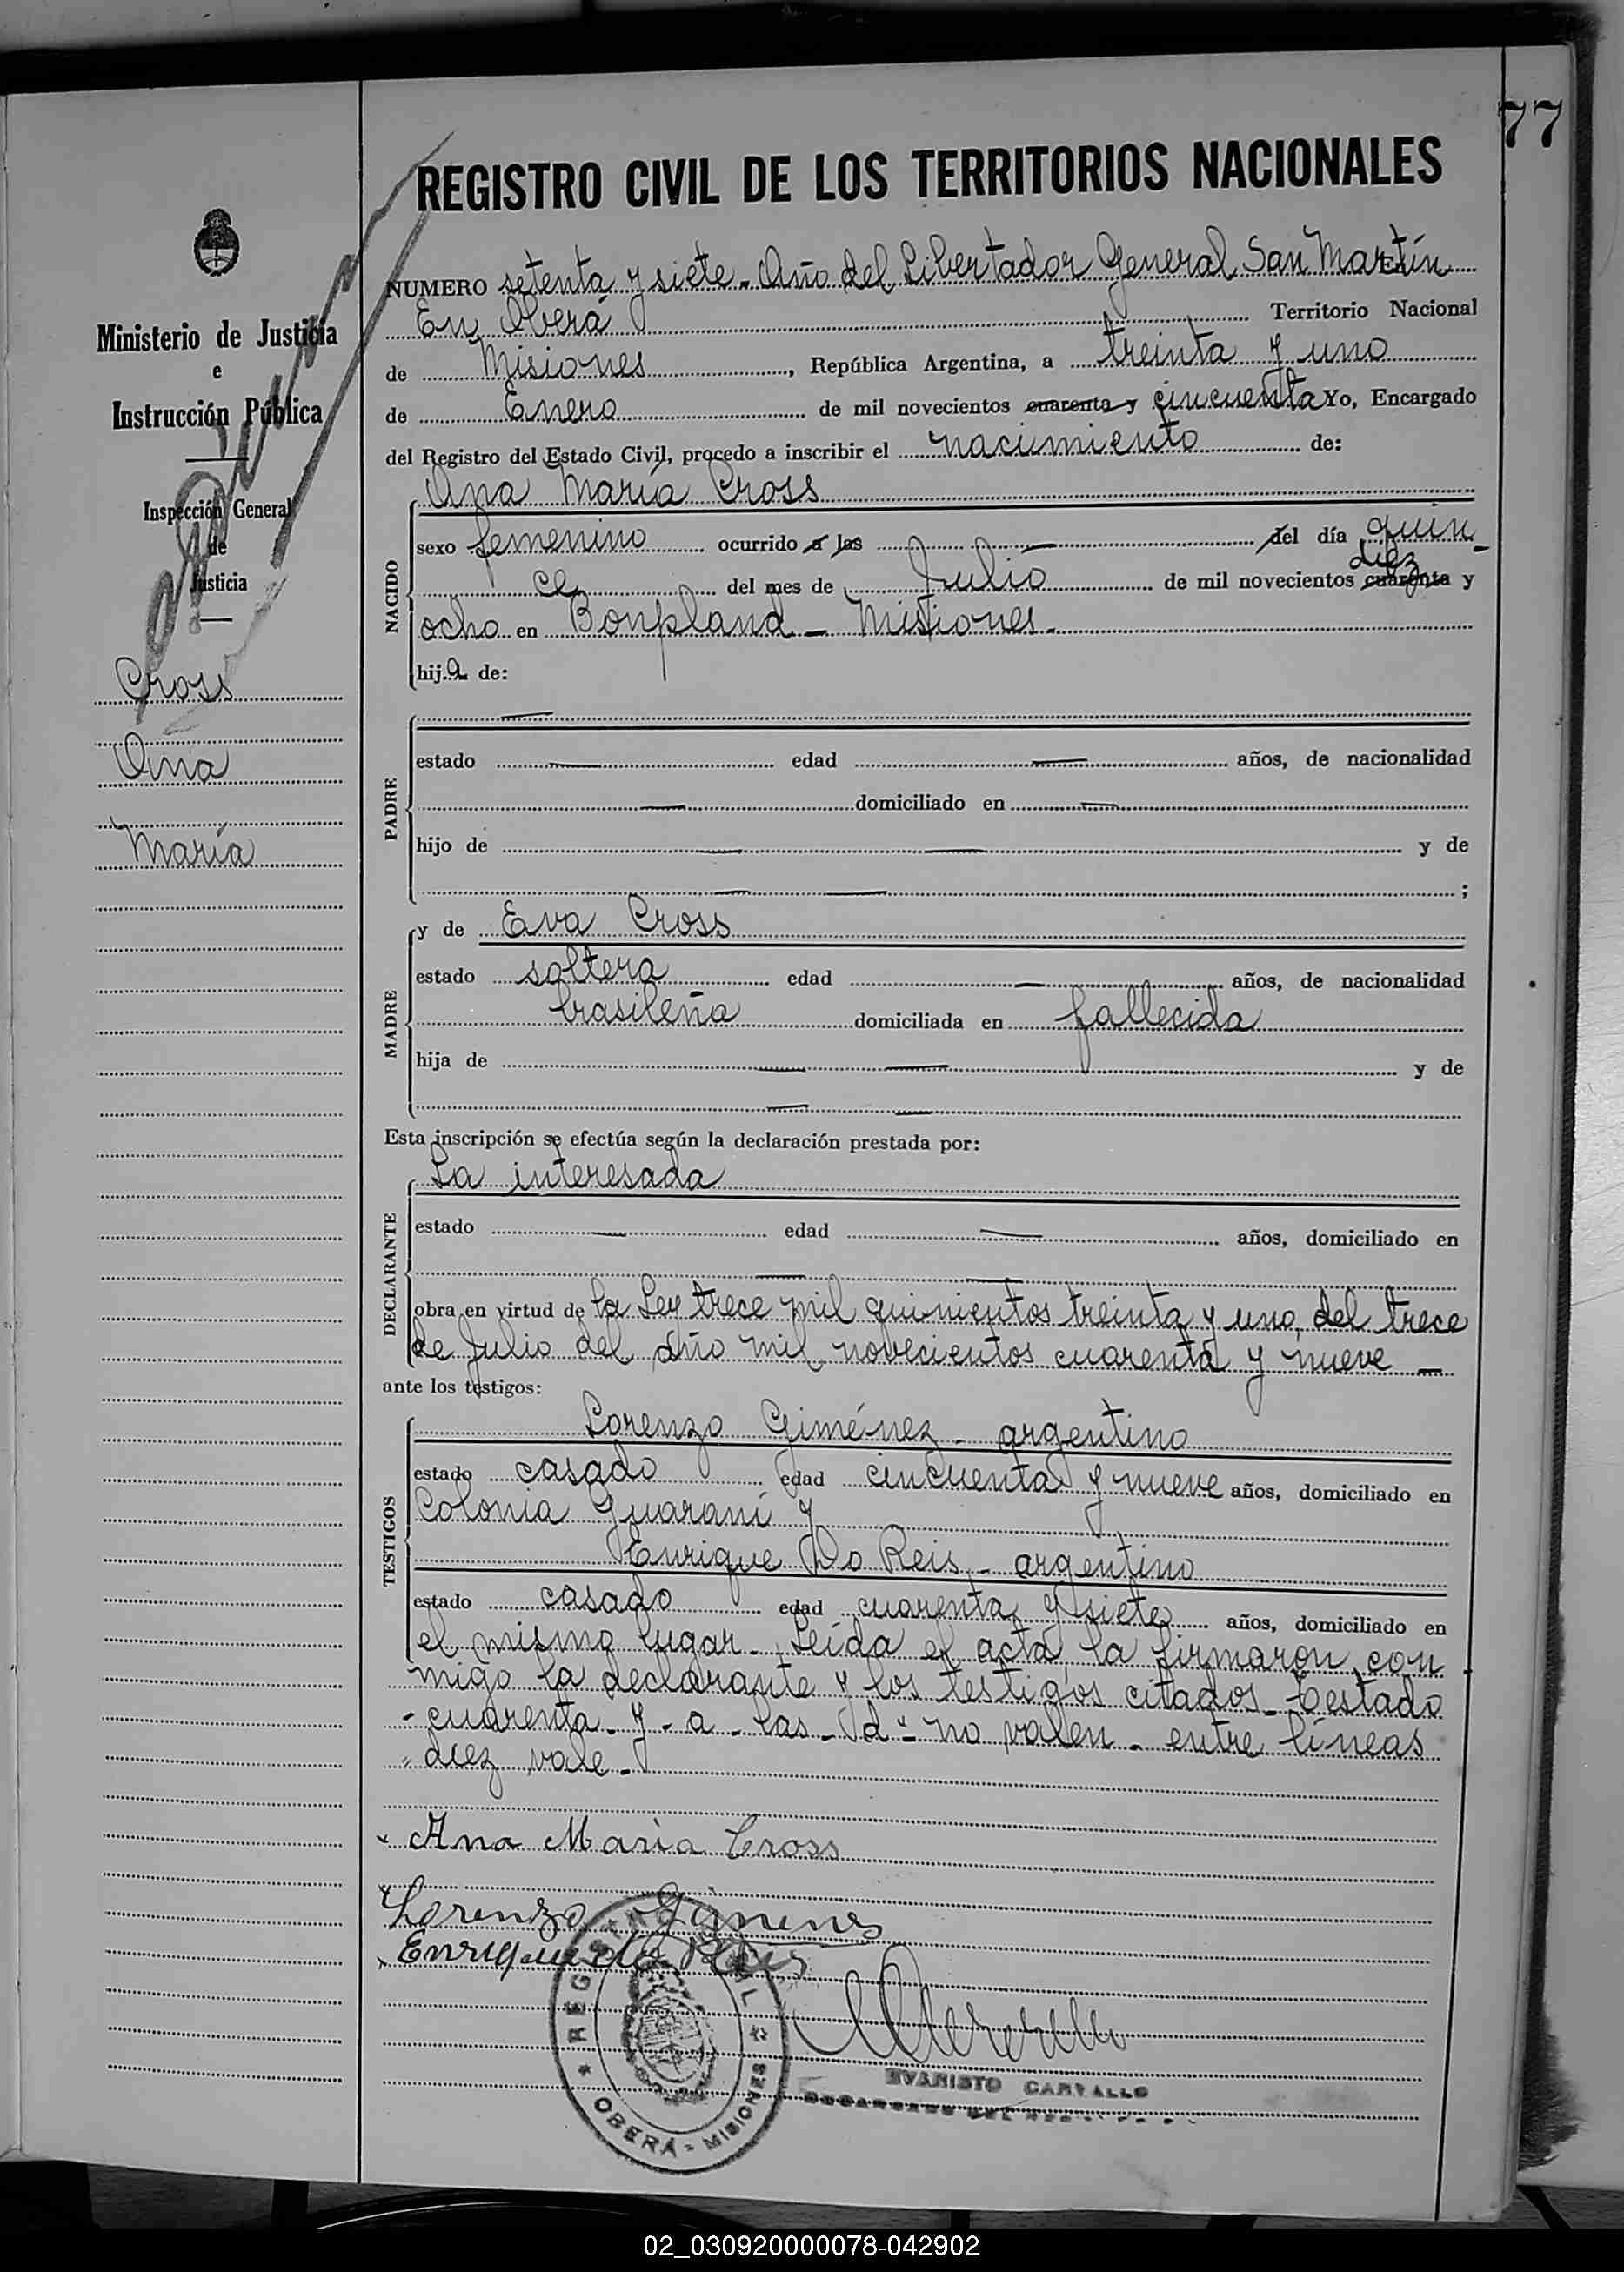 77
REGISTRO CIVIL DE LOS TERRITORIOS NACIONALES
NUMERO setenta y siete. Año del Libertador General San Martín
En Oberá Territorio Nacional
de Misiones, República Argentina, a treinta y uno
de Enero de mil novecientos cuarenta y cincuenta Yo, Encargado
del Registro del Estado Civil, procedo a inscribir el nacimiento de:
Ana María Cross
NACIDO
sexo femenino ocurrido a las — del día quin-
ce del mes de Julio de mil novecientos cuarenta diez y
ocho en Bonpland - Misiones.
hija de:
PADRE
estado — edad — años, de nacionalidad
— domiciliado en —
hijo de — — y de
— — ;
MADRE
y de Eva Cross
estado soltera edad — años, de nacionalidad
brasileña domiciliada en fallecida
hija de — — y de
— —
Esta inscripción se efectúa según la declaración prestada por:
La interesada
DECLARANTE
estado — edad — años, domiciliado en
— —
obra en virtud de la Ley trece mil quinientos treinta y uno, del trece
de Julio del año mil novecientos cuarenta y nueve —
ante los testigos:
TESTIGOS
Lorenzo Giménez - argentino
estado casado edad cincuenta y nueve años, domiciliado en
Colonia Guaraní y
Enrique Do Reis - argentino
estado casado edad cuarenta y siete años, domiciliado en
el mismo lugar. Leída el acta, la firmaron con
migo la declarante y los testigos citados. Testado
- cuarenta - y - a - las - d" no valen - entre líneas
" diez vale.
Ana Maria Cross
Lorenzo Gimenes
Enrique do Reis
REGISTRO CIVIL
OBERÁ - MISIONES
EVARISTO CARVALLO
ENCARGADO DEL
Ministerio de Justicia
e
Instrucción Pública
Inspección General
de
Justicia
Cross
Ana
María
02_030920000078-042902